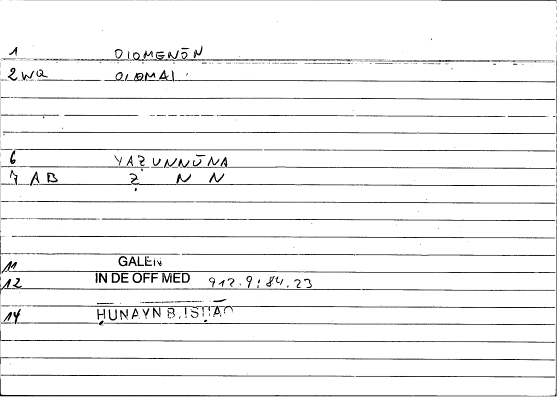 1 OIOMENŌN
2 WQ OIOMAI
6 YAẒUNNŪNA
7 AB Ẓ N N
11 GALEN
12 IN DE OFF MED 912.9:84.23
14 ḤUNAYN B. ISḤĀQ